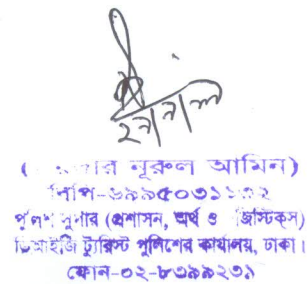 নূরুল আমিন)
বিপি-৬৯৯৫০৩১১৩২
পুলিশ সুপার (প্রশাসন, অর্থ ও লজিস্টিকস)
ডিআইজি ট্যুরিস্ট পুলিশের কার্যালয়, ঢাকা।
ফোন-০২-৮৩৯৯২৩১